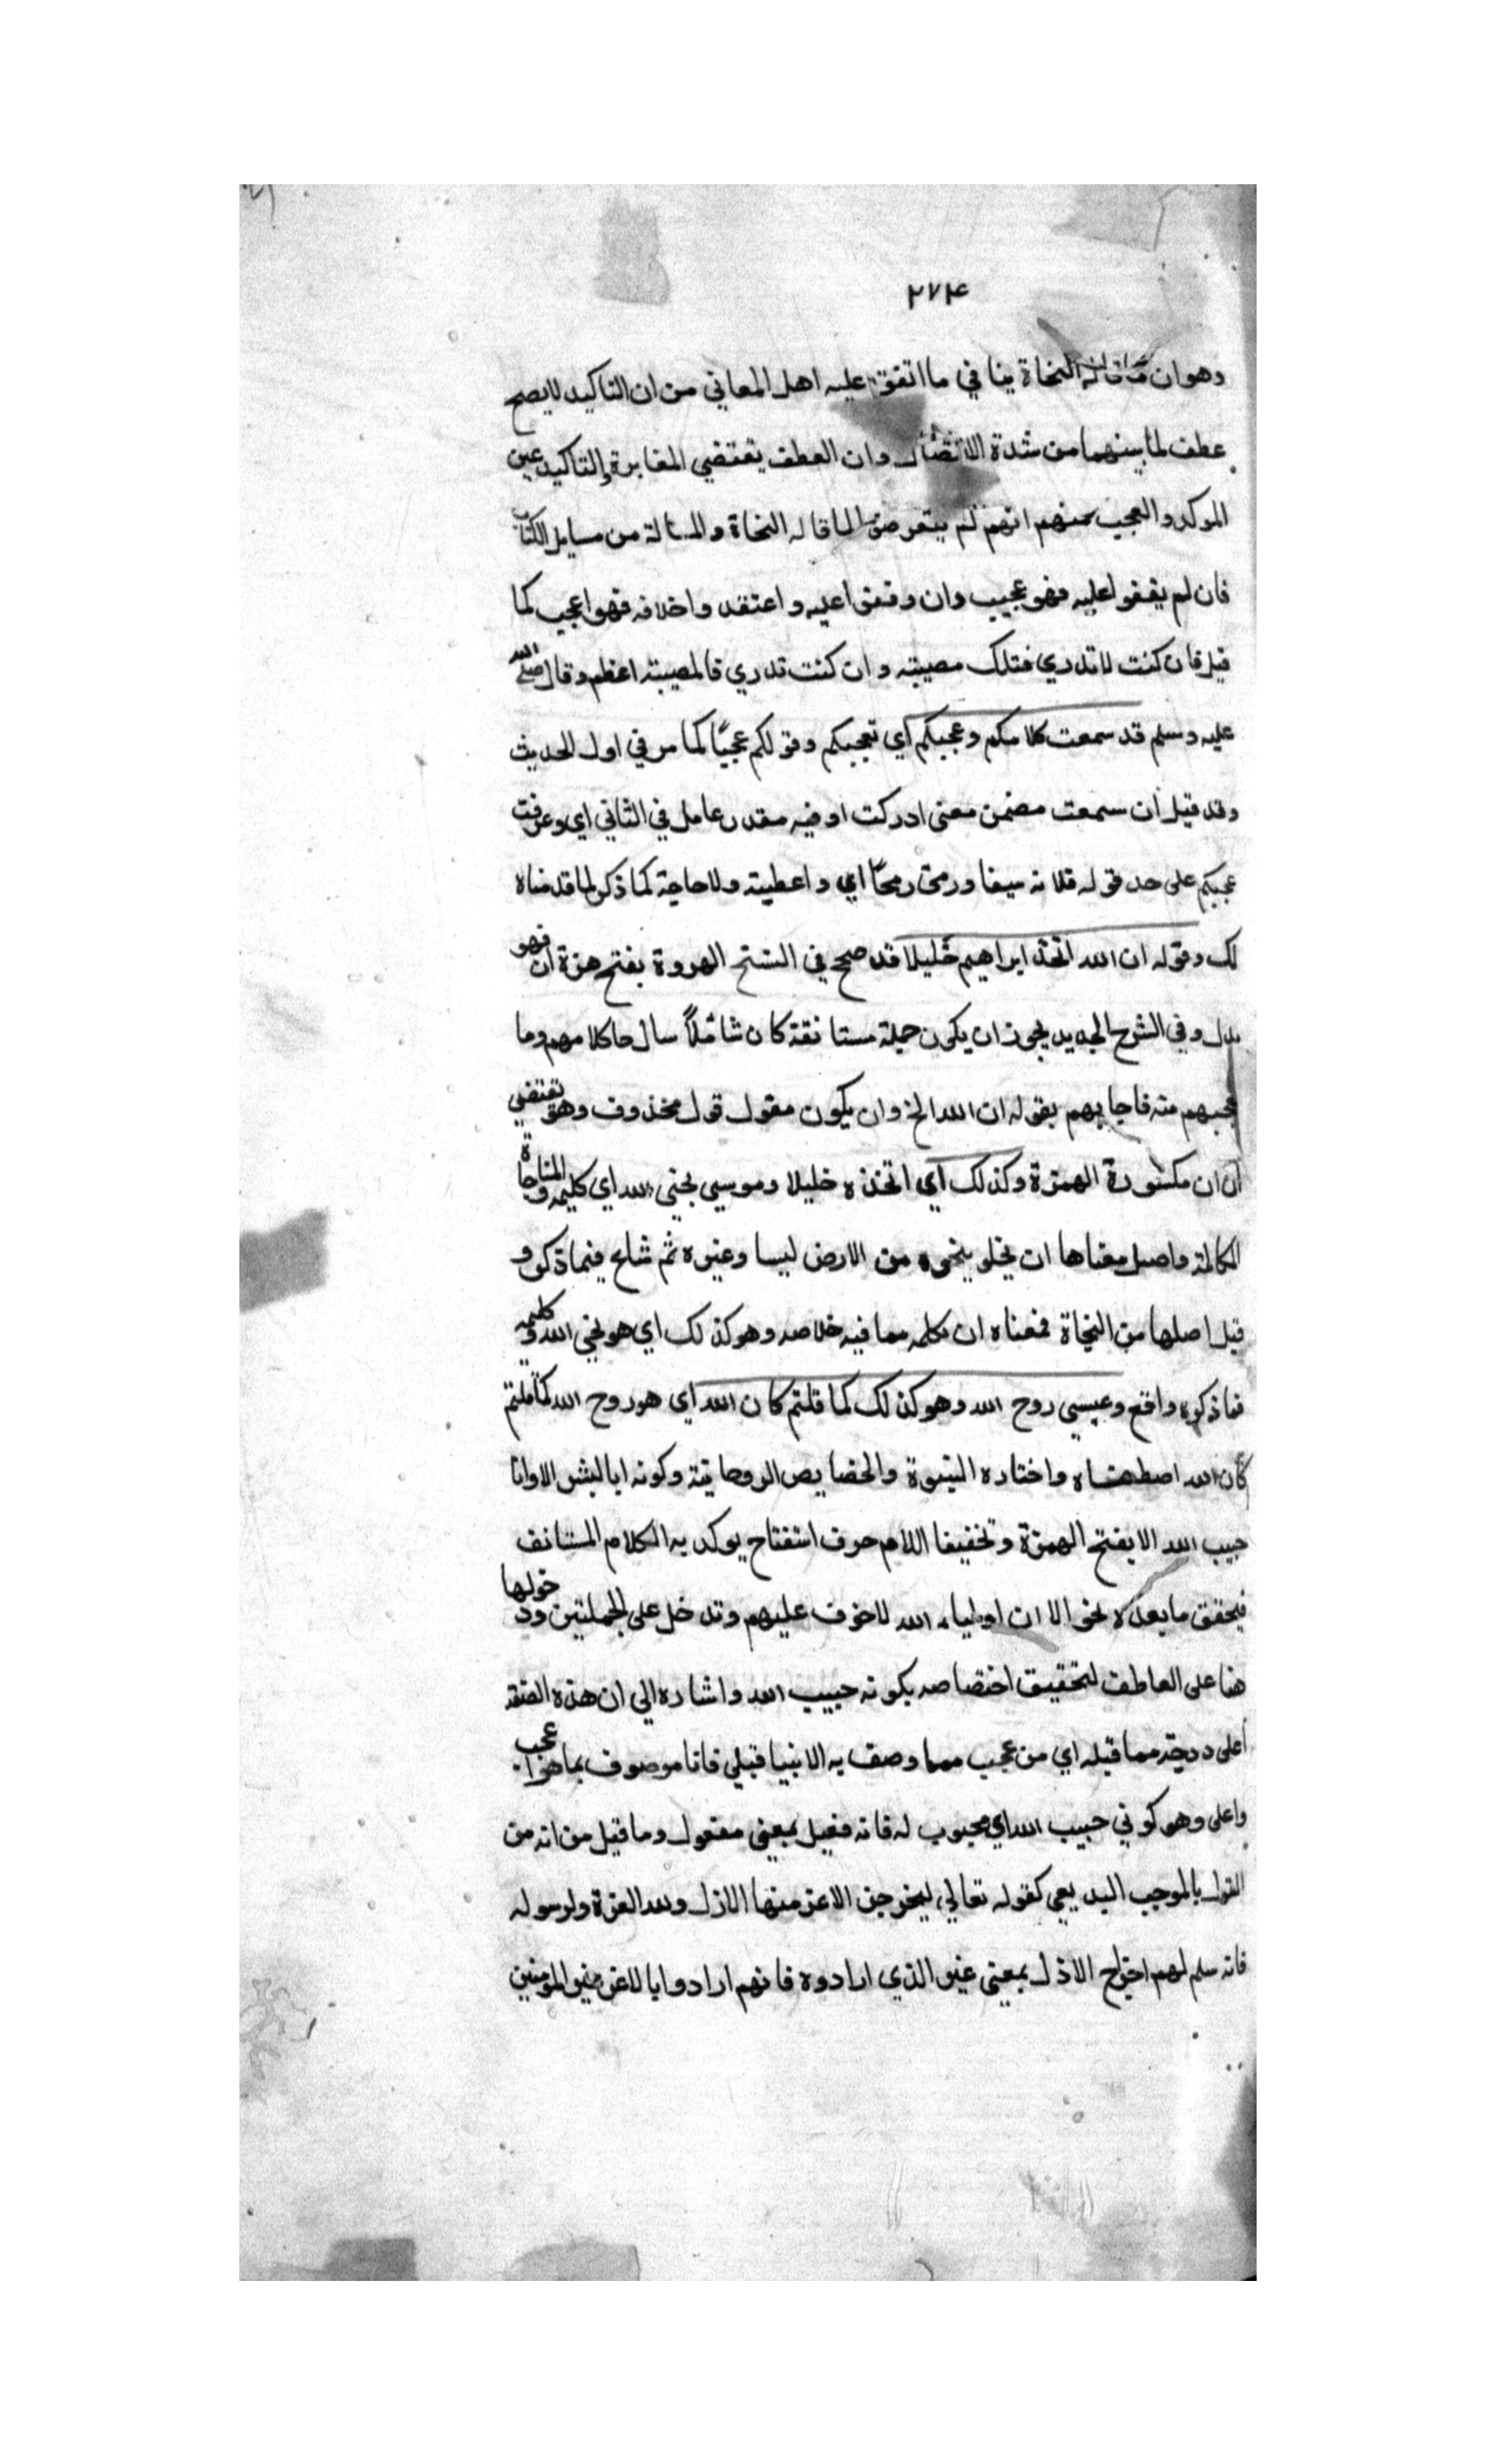 ٢٧٤
وهو ان ما قاله النحاة ينافي ما اتفق عليه اهل المعاني من ان التاكيد لا يصح
عطف لما بينهما من شدة الاتصال وان العطف يقتضي المغايرة والتاكيد عين
الموكد والعجيب منهم انهم لم يتعرضوا لما قاله النحاة والمسالة من مسايل الكتاب
فان لم يقفوا عليه فهو عجيب وان وقفوا عليه واعتقدوا خلافه فهو اعجب كما
قيل فان كنت لا تدري فتلك مصيبة وان كنت تدري فالمصيبة اعظم وقال صلى الله
عليه وسلم قد سمعت كلامكم وعجبكم اي تعجبكم وقولكم عجبًا كما مر في اول الحديث
وقد قيل ان سمعت مضمن معنى ادركت او فيه مقدر عامل في الثاني اي وعرفت
عجبكم على حد قوله قلدته سيفا ورمحًا اي واعطيته ولا حاجة كما ذكر لما قدمناه
لك وقوله ان الله اتخذ ابراهيم خليلا قد صحح في النسخ المروية بفتح همزة ان فهو
بدل وفي الشرح الجديد يجوز ان يكون جملة مستانفة كان سائلاً سال ما كلامهم وما
عجبهم منه فاجابهم بقوله ان الله الخ وان يكون مقول قول محذوف وهو يقتضي
ان ان مكسورة الهمزة وكذلك اي اتخذه خليلا وموسي نجي الله اي كليمه والمناجاة
المكالمة واصل معناها ان يخلو بنجوه من الارض ليسا وغيره ثم شاع فيما ذكر و
قيل اصلها من النجاة فمعناه ان تكلمه مما فيه خلاصه وهو كذلك اي هو نجي الله وكليمه
فما ذكروه واقع وعيسي روح الله وهو كذلك كما قلتم كان الله اي هو روح الله كما قلتم
كان الله اصطفاه واختاره النبوة والخصايص الروحانية وكونه ابا البشر الا وانا
حبيب الله الا بفتح الهمزة وتخفيفا اللام حرف استفتاح يوكد به الكلام المستانف
فيحقق ما بعده نحو الا ان اولياء الله لا خوف عليهم وتدخل على الجملتين ودخولها
هنا على العاطف لتحقيق اختصاصه بكونه حبيب الله واشاره الي ان هذه الصفة
اعلى درجة مما قبله اي من عجب مما وصف به الانبيا قبلي فانا موصوف بما هو اعجب
واعلى وهو كوني حبيب الله اي محبوب له فانه فعيل بمعنى مفعول وما قيل من انه من
القول بالموجب البديعي كقوله تعالي ليخرجن الاعز منها الاذل ولله العزة ولرسوله
فانه سلم لهم اخراج الاذل بمعنى غير الذي ارادوه فانهم ارادوا بالاعز غير المومنين